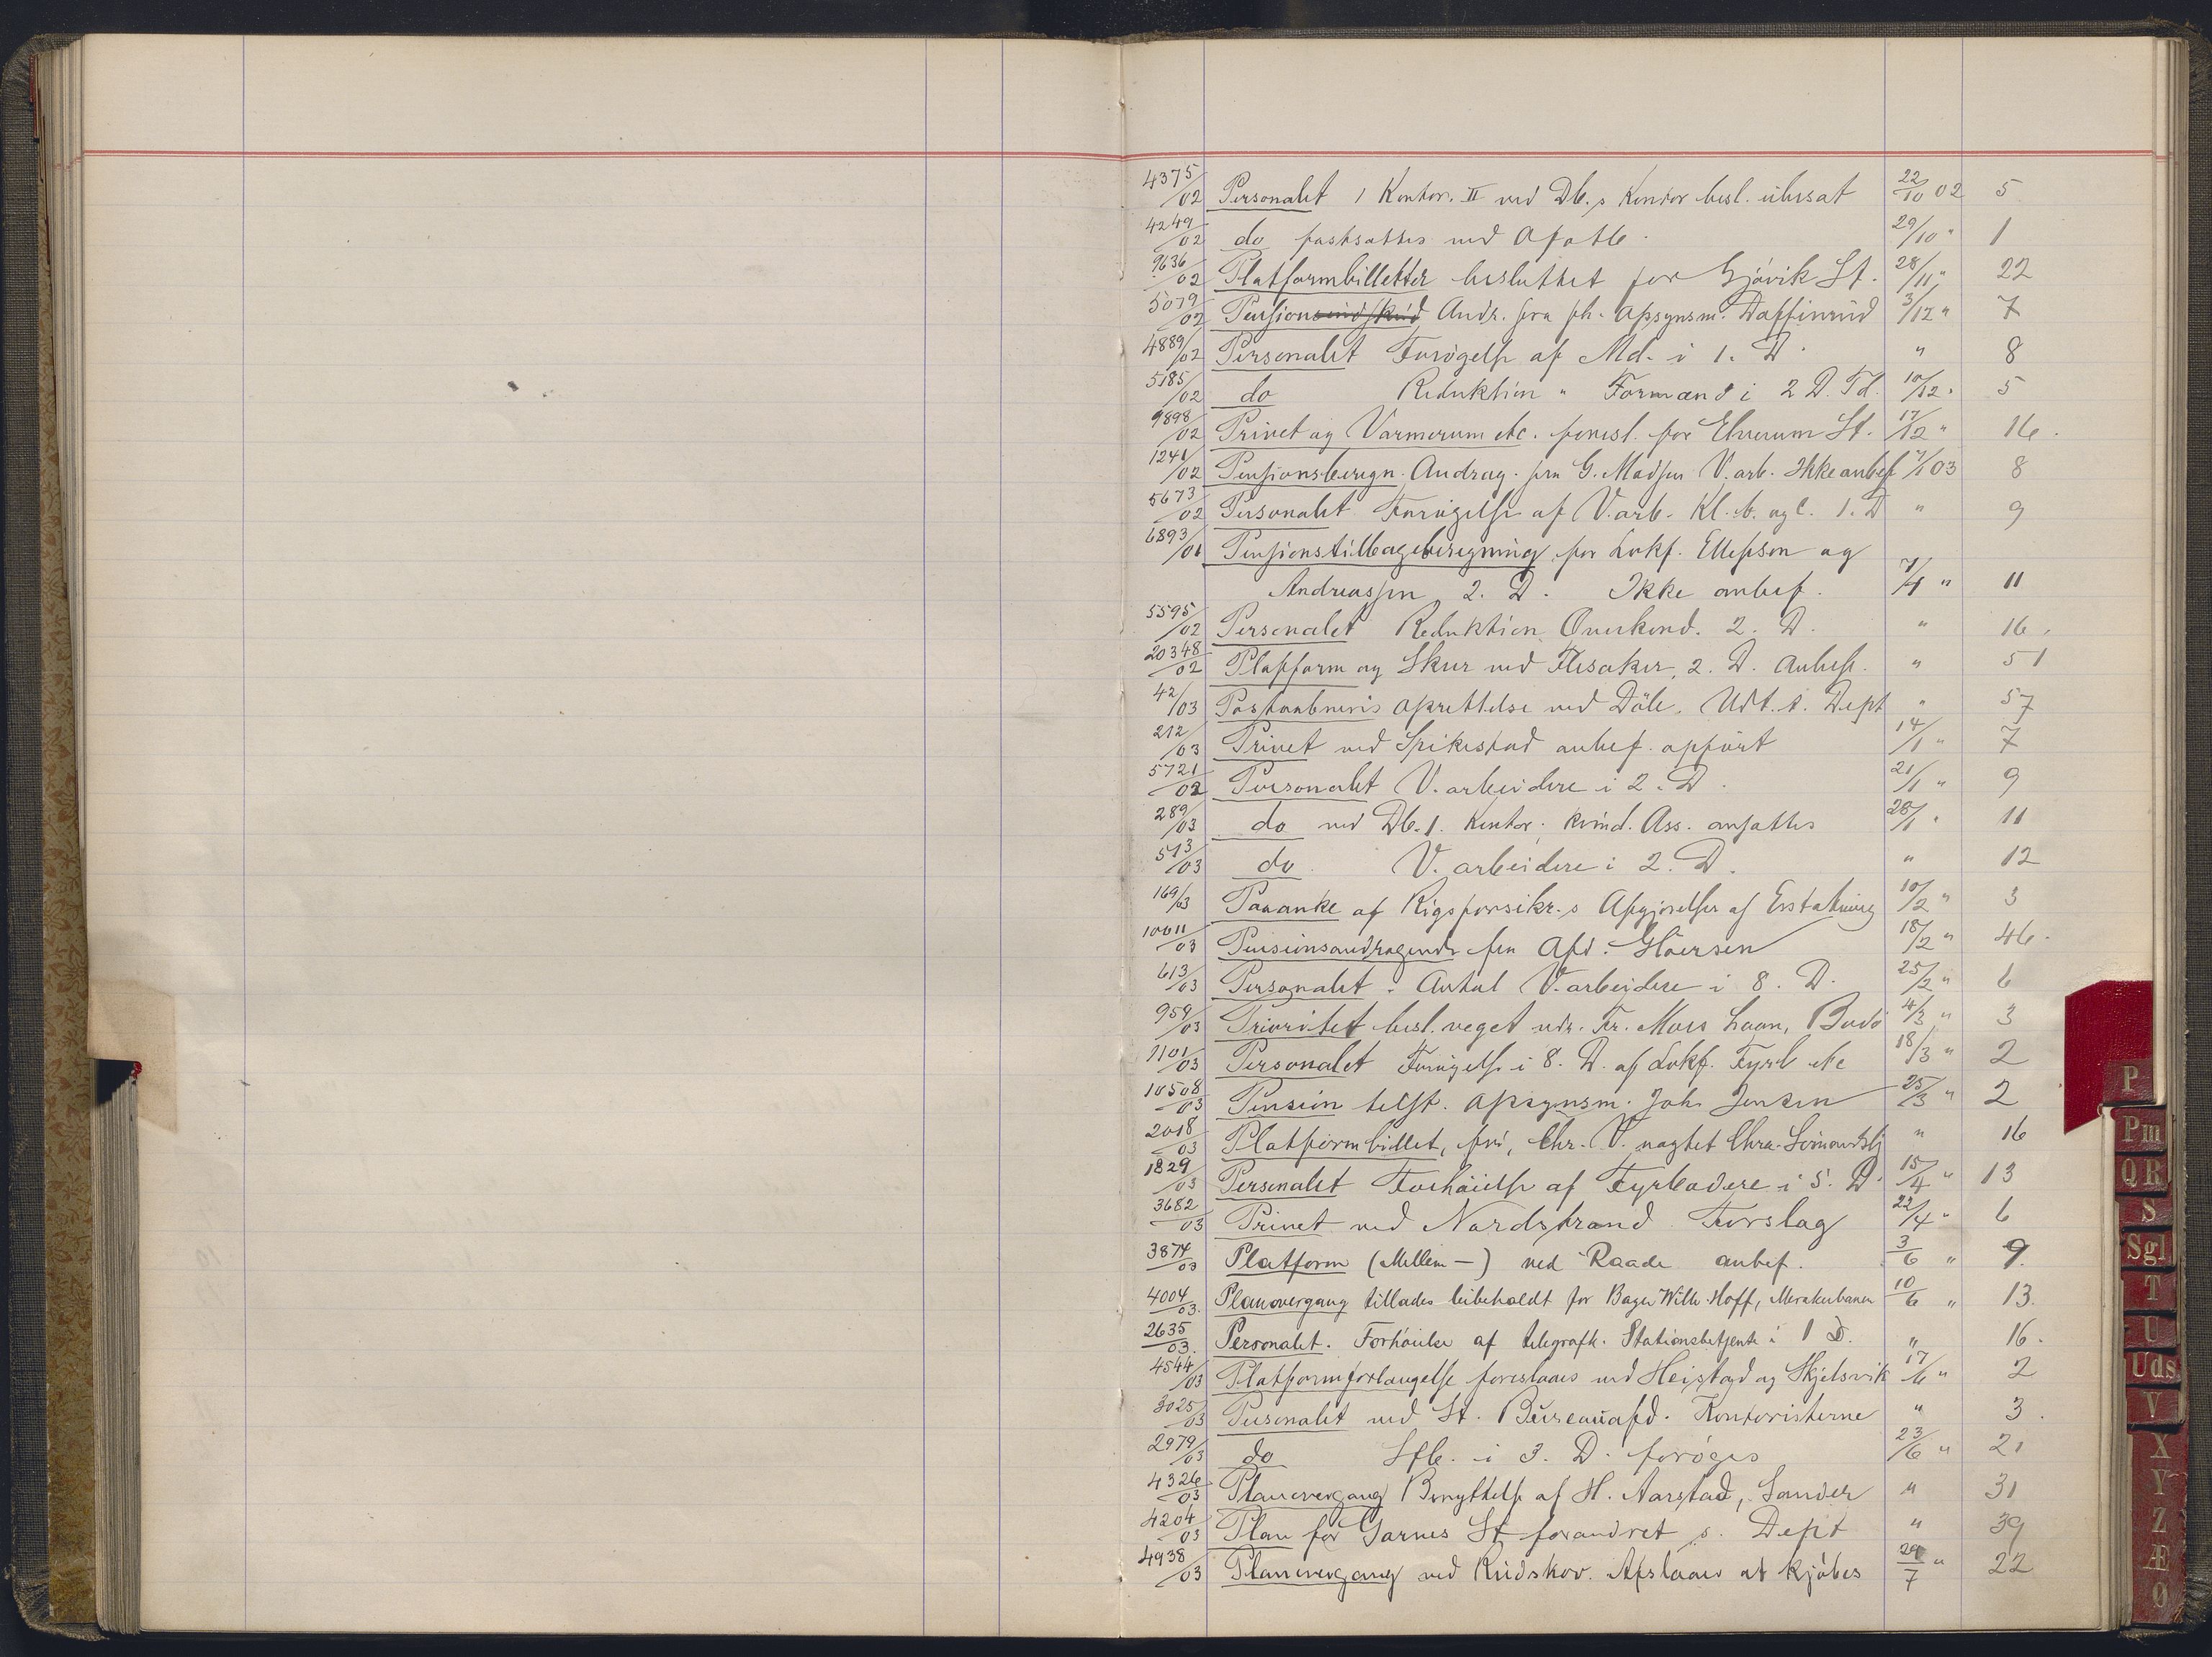 4375/02 Personalet 1 Kontor. II ved Db.s Kontor besl. ubesat 22/10 02 5
4249/02 do fastsattes ved 29/10 " 1
9636/02 Platformbilletter besluttet for Gjövik St. 28/11 " 22
5079/02 Pensionsindskud Andr. fra fh. Opsynsm. Daffinrud 3/12 " 7
4889/02 Personalet Forögelse af Md. i 1. D. " 8
5185/02 do Reduktion " Formænd i 2 D. Td. 10/12 " 5
9898/02 Privet og Varmerum etc. foresl. for Elverum St. 17/12 " 16.
1241/02 Pensionsberegn. Andrag. fra G. Madsen V.arb. Ikke anbef. 7/1 03 8
5673/02 Personalet Forögelse af V.arb. Kl. b. og c. 1. D " 9
6893/01 Pensionstilbageberegning for Lokf. Ellefson og
Andreassen 2. D. Ikke anbef. 7/1 " 11
5595/02 Personalet Reduktion Overkond. 2. D. " 16.
20348/02 Platform og Skur ved Flesaker, 2. D. Anbef. " 51
42/03 Postaabneris oprettelse ved Döle. Udt. t. Dept " 57
212/03 Privet ved Spikestad anbef. opfört 14/1 " 7
5721/02 Personalet V. arbeidere i 2. D. 21/1 " 9
289/03 do ved Db. 1. Kontor; kvind. Ass. ansattes 28/1 " 11
513/03 do V. arbeidere i 2. D. " 12
169/03 Paaanke af Rigsforsikr.s Afgjörelser af Erstatning 10/2 " 3
10011/03 Pensionsandragende fra Afd. 18/2 " 46.
613/03 Personalet. Antal V. arbeidere i 8. D. 25/2 " 6
959/03 Prioritet besl. veget vdr. Fr. Moes Laan, Bodö 4/3 " 3
1101/03 Personalet Forögelse i 8. D. af Lokf. Fyrb etc 18/3 " 2
10508/03 Pension tilst. Opsynsm. Joh. Jensen 25/3 " 2
2018/03 Platformbillet, fri, Chr. V. nagtet Chra. " 16
1829/03 Personalet Forhöielse af Fyrbödere i 5. D. 15/4 " 13
3682/03 Privet ved Nordstrand Forslag 22/4 " 6
3874/03 Platform (Mellem-) ved Raade anbef. 3/6 " 9.
4004/03. Planovergang tillades beibeholdt for Bager Wilh. Hoff, Merakerbanen 10/6 " 13.
2635/03. Personalet. Forhöielse af telegrafk. Stationsbetjente i 1 D. " 16.
4544/03 Platformforlængelse foreslaaes ved Heistad og Skjelsvik 17/6 " 2
3025/03 Personalet ved St. Bureauafd. Kontoristerne " 3.
2979/03 do Stb. i 3. D. foröges 23/6 " 21
4326/03 Planovergang Benyttelse af H. Aarstad, Sander " 31
4204/03 Plan for Garnes St forandret s. Dept " 39
4938/03 Planovergang ved Rudskov. Afslaaes at kjöbes 29/7 " 22
P
Pm
QR
S
Sgl
T
U
Uds
V
X
Y
Z
Æ
Ø